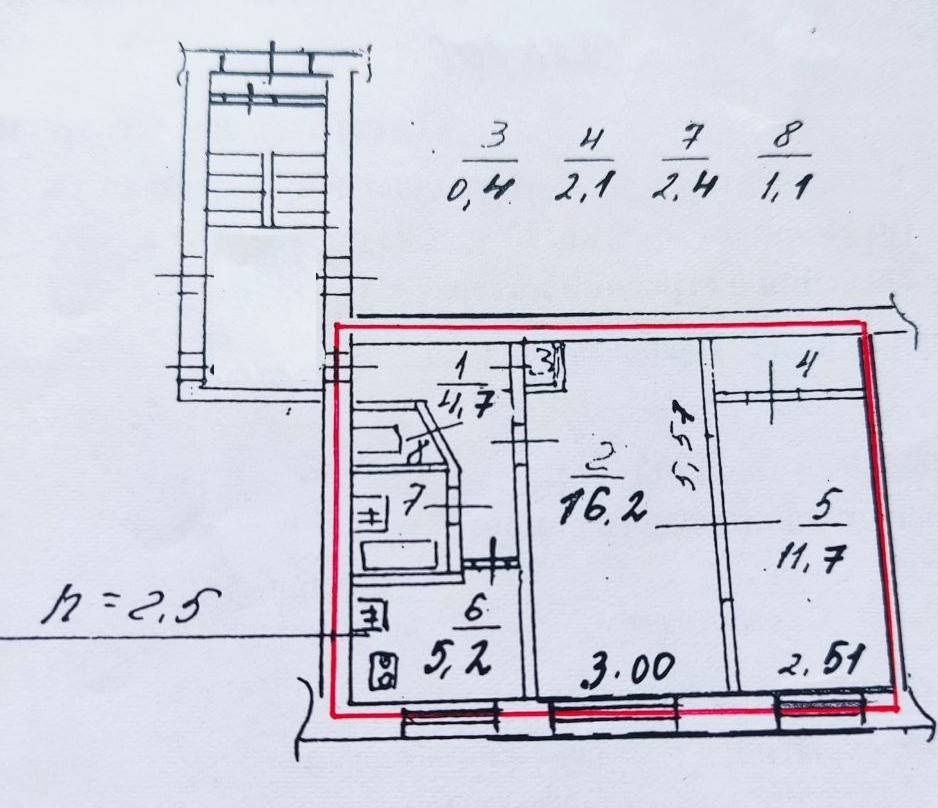 3 4 7 8
0,4 2,1 2,4 1,1
3
4
1
4,7
8
2
16,2
5,57
7
5
11,7
h = 2,5
6
5,2
3.00
2,51